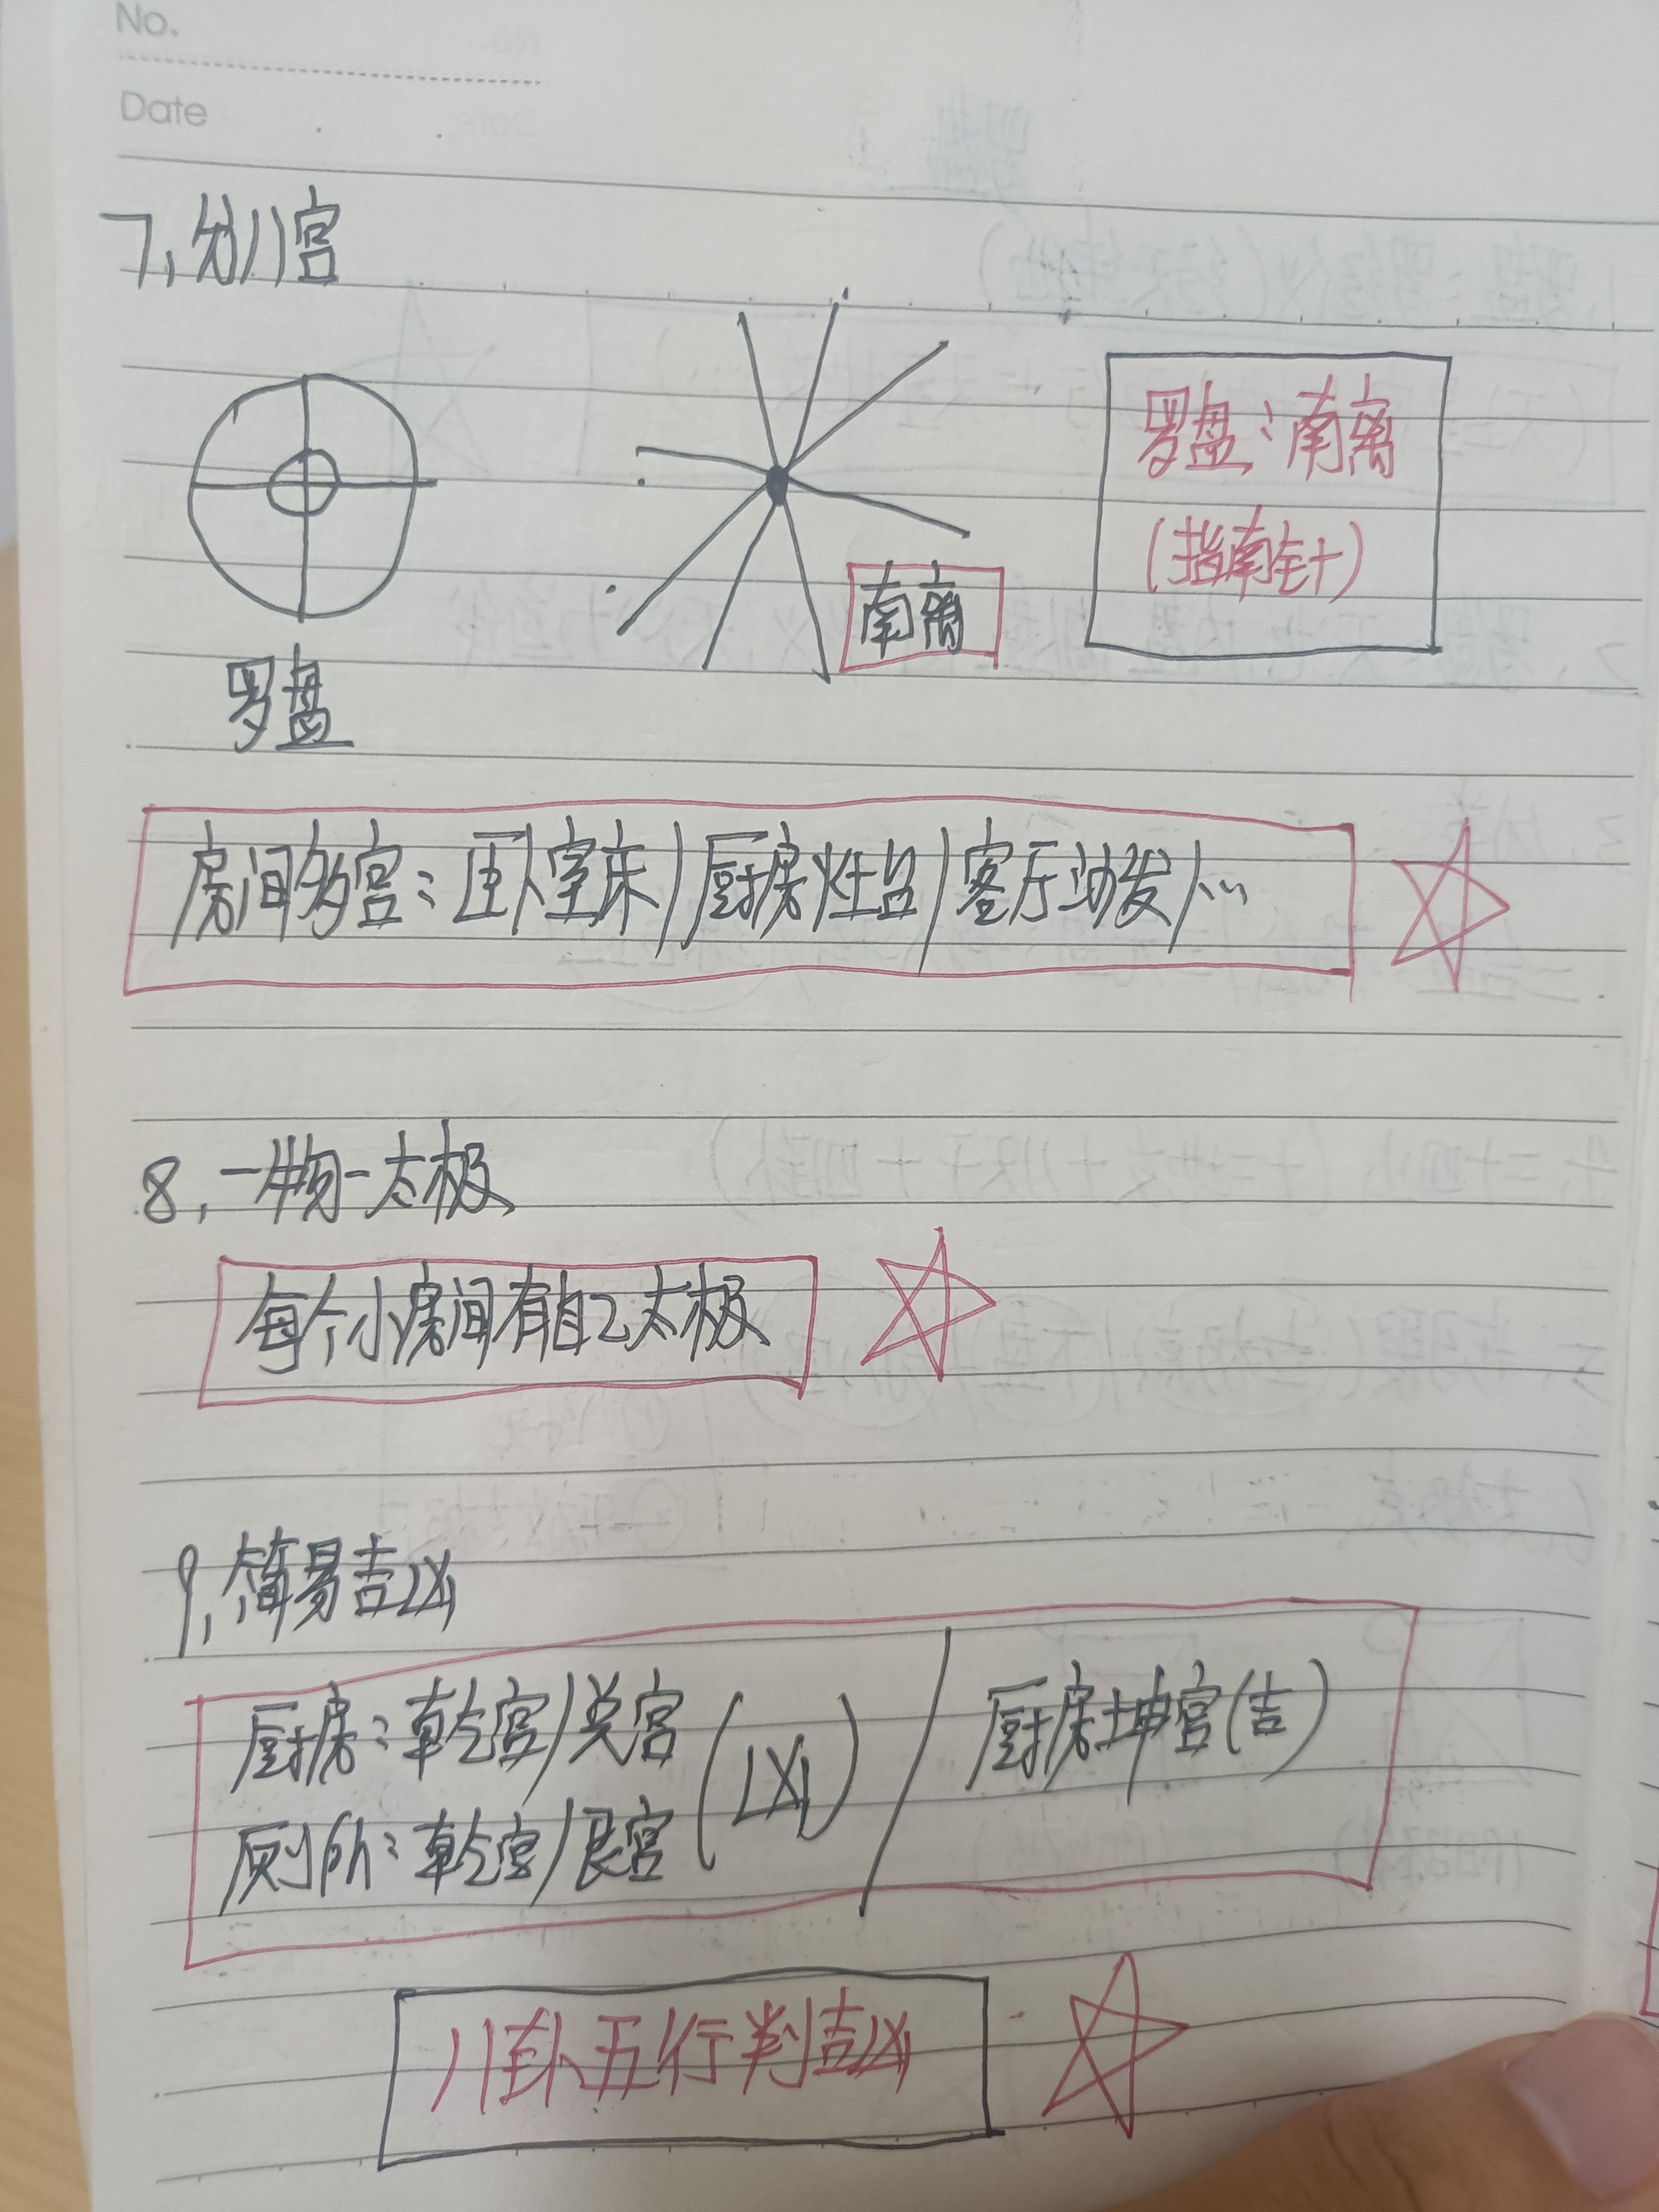 No.
Date
7、分八宫
罗盘：南离
(指南针)
南离
罗盘
房间多宫：卧室床/厨房灶台/客厅沙发/…
8、一物一太极
每个小房间有自己太极
9、简易吉凶
厨房：乾宫/兑宫
厕所：乾宫/艮宫
(凶)
厨房坤宫(吉)
八卦五行判吉凶